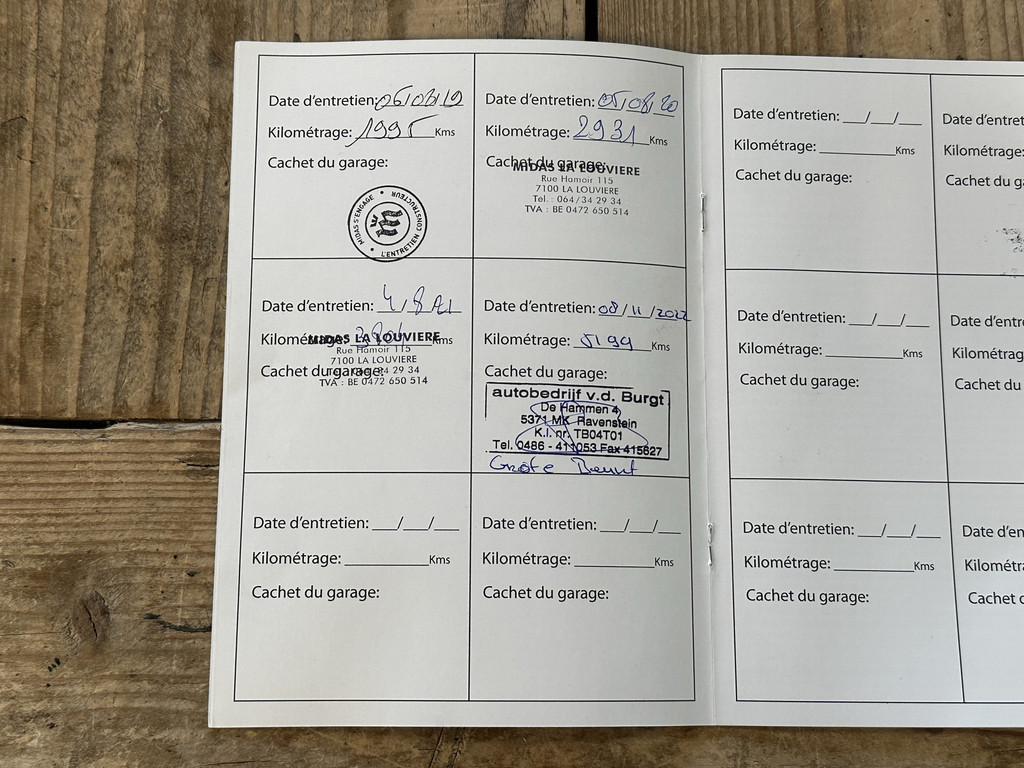 Date d'entretien: 05/08/19
Kilométrage: 1995 Kms
Cachet du garage:
MIDAS S'ENGAGE • L'ENTRETIEN CONSTRUCTEUR •
Date d'entretien: 05/08/20
Kilométrage: 2931 Kms
Cachet du garage:
MIDAS LA LOUVIERE
Rue Hamoir 115
7100 LA LOUVIERE
Tel.: 064/34 29 34
TVA : BE 0472 650 514
Date d'entretien: 4/8/21
Kilométrage: Kms
MIDAS LA LOUVIERE
Rue Hamoir 115
7100 LA LOUVIERE
Cachet du garage:
34 29 34
TVA : BE 0472 650 514
Date d'entretien: 08/11/2022
Kilométrage: 5199 Kms
Cachet du garage:
autobedrijf v.d. Burgt
De Hammen 4
5371 MK Ravenstein
K.I. nr. TB04T01
Tel. 0486 - 411053 Fax 415627
Grote Beurt
Date d'entretien: __/__/__
Kilométrage: ________Kms
Cachet du garage:
Date d'entretien: __/__/__
Kilométrage: ________Kms
Cachet du garage:
Date d'entretien: __/__/__
Kilométrage: ________Kms
Cachet du garage:
Date d'entret
Kilométrage:
Cachet du ga
Date d'entretien: __/__/__
Kilométrage: ________Kms
Cachet du garage:
Date d'entre
Kilométrage
Cachet du
Date d'entretien: __/__/__
Kilométrage: ________Kms
Cachet du garage:
Date d'en
Kilométra
Cachet c